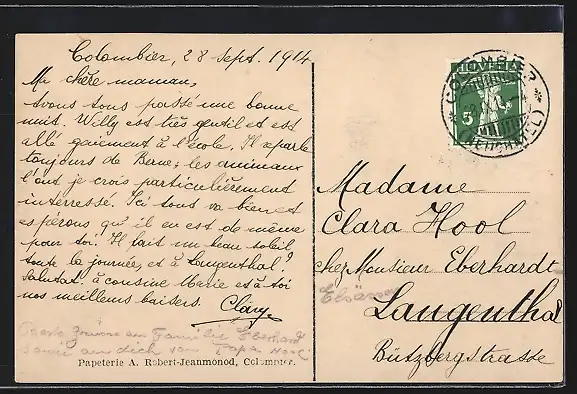 Colombier, 28 Sept. 1914
Ma chère maman,
Avons tous passé une bonne
nuit. Willy est très gentil et est
allé gaîment à l'école. Il reparle
toujours de Berne; les animaux
l'ont je crois particulièrement
interressé. Ici tout va bien et
espérons qu'il en est de même
pour toi. Il fait un beau soleil
toute la journée, et à Langenthal?
Salutat. à cousine Marie et à toi
nos meilleurs baisers. Clary.
Beste Grüsse an Familie Eberhard
sowie an dich von Papa Hool
Papeterie A. Robert-Jeanmonod, Colombier.
HELVETIA
5
COLOMBIER
(NEUCHATEL)
Madame
Clara Hool
chez Monsieur Eberhardt
Langenthal
Bützbergstrasse